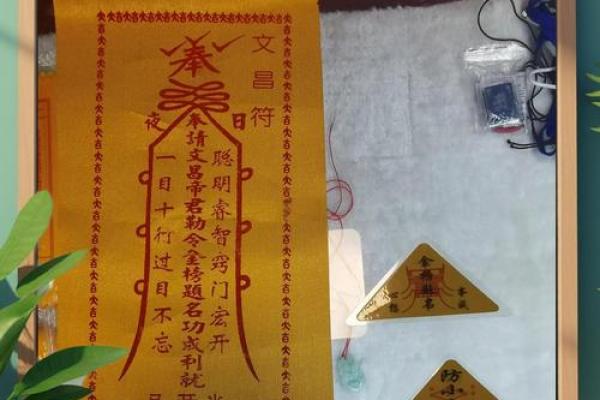 文昌符
奉
日
夜
聪明睿智窍门宏开
奉請文昌帝君勅令金榜題名功成利就
一目十行过目不忘
金榜
題名
心想
事成
防小